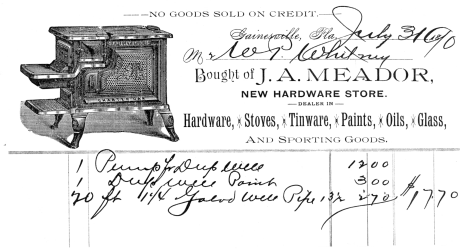 NO GOODS SOLD ON CREDIT.
Gainesville, Fla, July 31 1890
Mr W. P. Whitney
Bought of J. A. MEADOR,
NEW HARDWARE STORE.
DEALER IN
Hardware, Stoves, Tinware, Paints, Oils, Glass,
AND SPORTING GOODS.
1 Pump for Dup Well 12 00
1 Well Point 3 00
20 ft 1 1/4 Galvd Well Pipe 13 1/2 2 70 $17.70